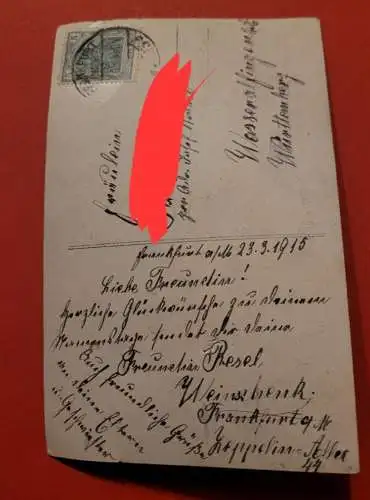 Fräulein
Wasseralfingen
Württemberg
Frankfurt a/M 23.3.1915
Liebe Freundin!
Herzliche Glückwünsche zu deinem
Namenstage sendet dir deine
Freundin Resel
Weinschenk
Frankfurt a. M
Zeppelin-Allee
44
Auch freundliche Grüße
an deine Eltern
u. Geschwister